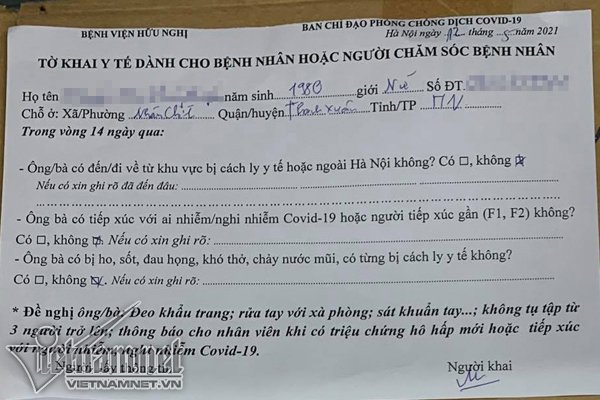 BỆNH VIỆN HỮU NGHỊ
BAN CHỈ ĐẠO PHÒNG CHỐNG DỊCH COVID-19
Hà Nội ngày 12 tháng 5 năm 2021
TỜ KHAI Y TẾ DÀNH CHO BỆNH NHÂN HOẶC NGƯỜI CHĂM SÓC BỆNH NHÂN
Họ tên năm sinh 1980 giới Nữ Số ĐT.
Chỗ ở: Xã/Phường Nhân Chính Quận/huyện Thanh Xuân Tỉnh/TP HN
Trong vòng 14 ngày qua:
- Ông/bà có đến/đi về từ khu vực bị cách ly y tế hoặc ngoài Hà Nội không? Có □, không ☑
Nếu có xin ghi rõ đã đến đâu:
- Ông bà có tiếp xúc với ai nhiễm/nghi nhiễm Covid-19 hoặc người tiếp xúc gần (F1, F2) không?
Có □, không ☑ Nếu có xin ghi rõ:
- Ông bà có bị ho, sốt, đau họng, khó thở, chảy nước mũi, có từng bị cách ly y tế không?
Có □, không ☑. Nếu có xin ghi rõ:
* Đề nghị ông/bà: Đeo khẩu trang; rửa tay với xà phòng; sát khuẩn tay...; không tụ tập từ
3 người trở lên; thông báo cho nhân viên khi có triệu chứng hô hấp mới hoặc tiếp xúc
với người nhiễm, nghi nhiễm Covid-19.
Người lấy thông tin
Người khai
vietnamnet
VIETNAMNET.VN